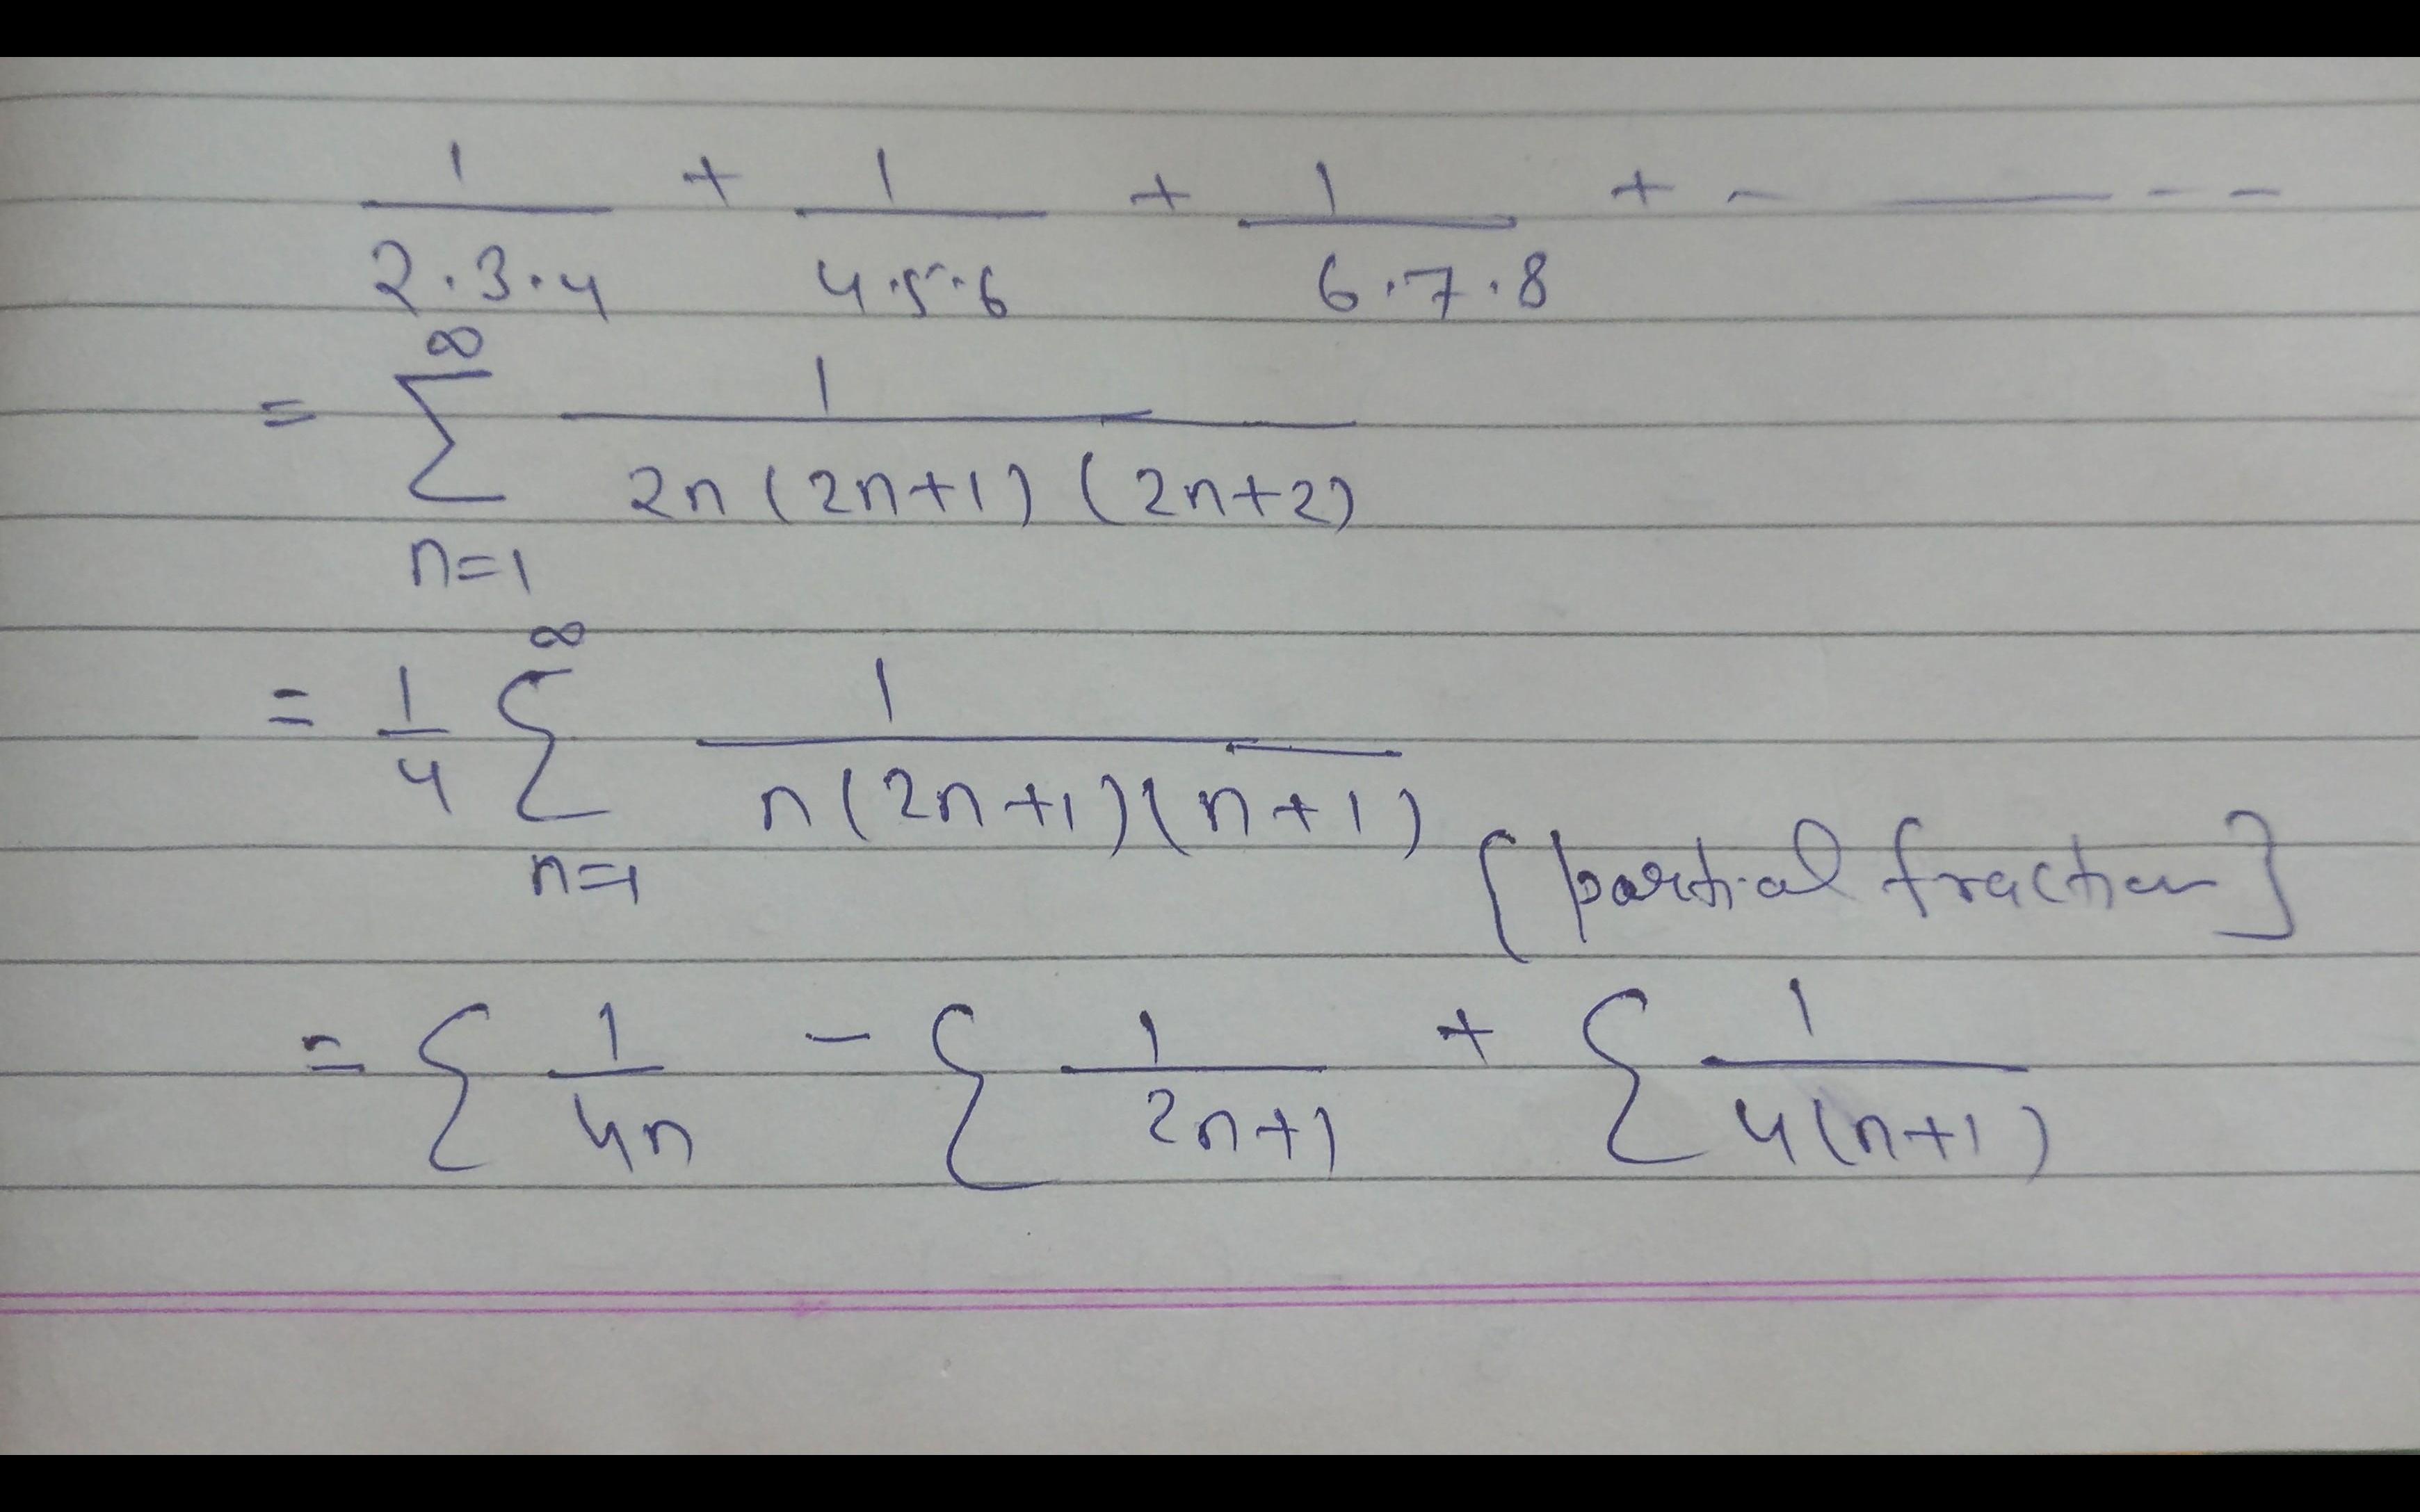 1/(2·3·4) + 1/(4·5·6) + 1/(6·7·8) + - — - -
= ∑_{n=1}^{∞} 1/(2n(2n+1)(2n+2))
= 1/4 ∑_{n=1}^{∞} 1/(n(2n+1)(n+1)) [partial fraction]
= ∑ 1/(4n) - ∑ 1/(2n+1) + ∑ 1/(4(n+1))